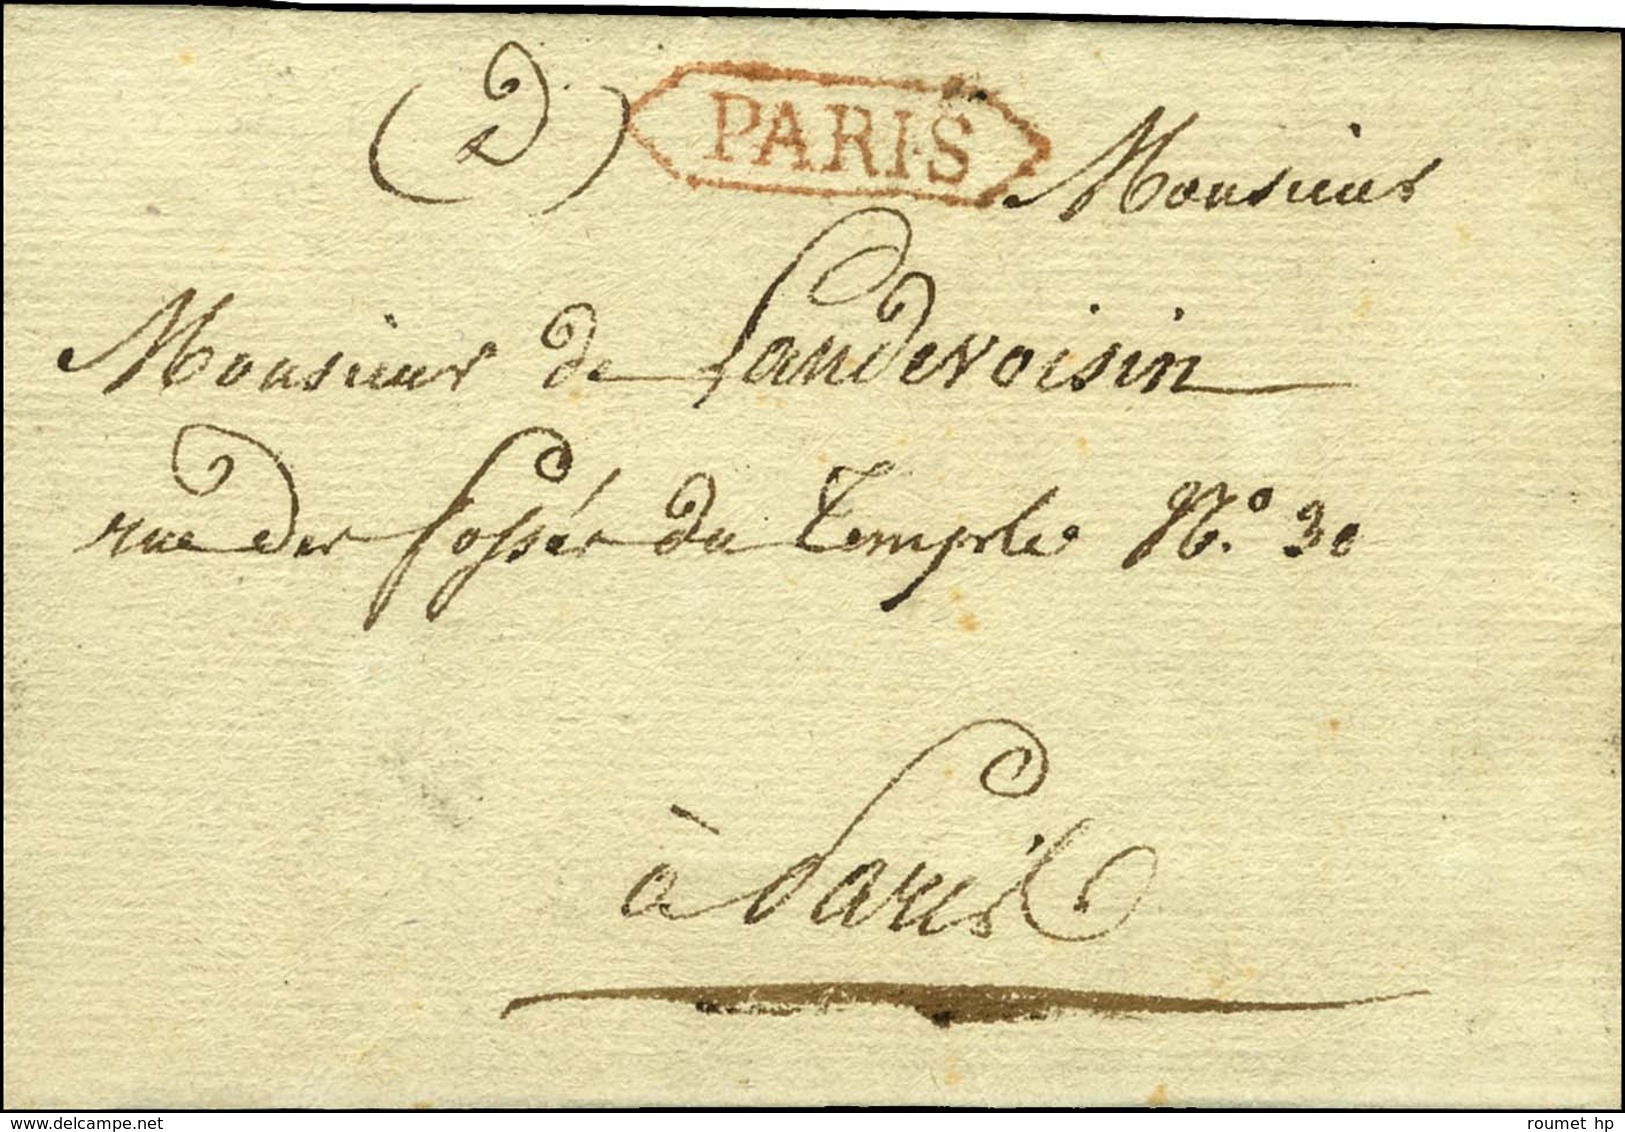 (2)
PARIS
Monsieur
Monsieur de Landevoisin
rue des fossés du Temple N.° 30
à Paris
delcampe.net
roumet hp